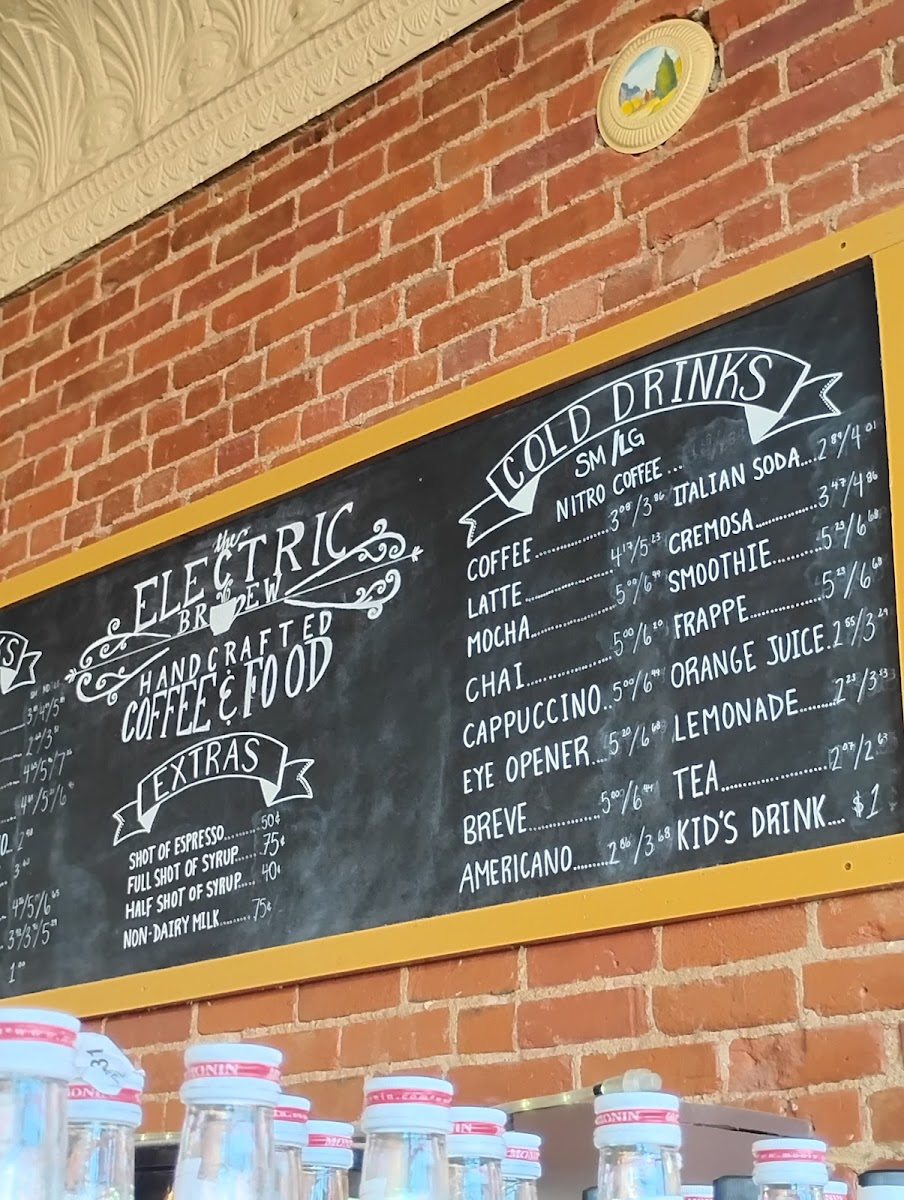 THE
ELECTRIC
BREW
HANDCRAFTED
COFFEE & FOOD
EXTRAS
SHOT OF ESPRESSO........50¢
FULL SHOT OF SYRUP.....75¢
HALF SHOT OF SYRUP....40¢
NON-DAIRY MILK........75¢
COLD DRINKS
SM/LG
NITRO COFFEE ...
COFFEE 3.08/3.86
LATTE 4.13/5.23
MOCHA 5.00/6.44
CHAI 5.00/6.20
CAPPUCCINO 5.00/6.44
EYE OPENER 5.20/6.68
BREVE 5.00/6.44
AMERICANO 2.86/3.68
ITALIAN SODA 2.89/4.01
CREMOSA 3.47/4.86
SMOOTHIE 5.23/6.68
FRAPPE 5.23/6.68
ORANGE JUICE 2.55/3.29
LEMONADE 2.23/3.33
TEA 2.07/2.63
KID'S DRINK... $1
1.00
31
MONIN
MONIN
MONIN
MONIN